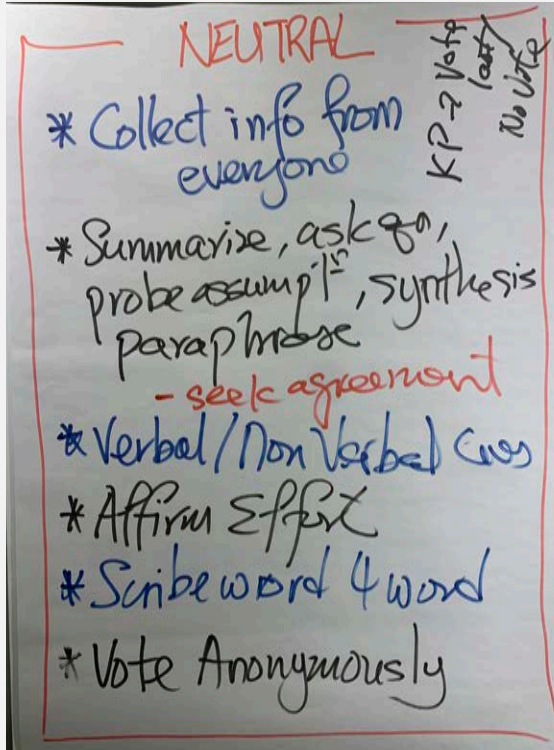 NEUTRAL
* Collect info from
everyone
* Summarise, ask qn,
probe assumptn, synthesis
paraphrase
- seek agreement
* Verbal/Non Verbal Cues
* Affirm Effort
* Scribe word 4 word
* Vote Anonymously
KP → Vote
last/
No Vote